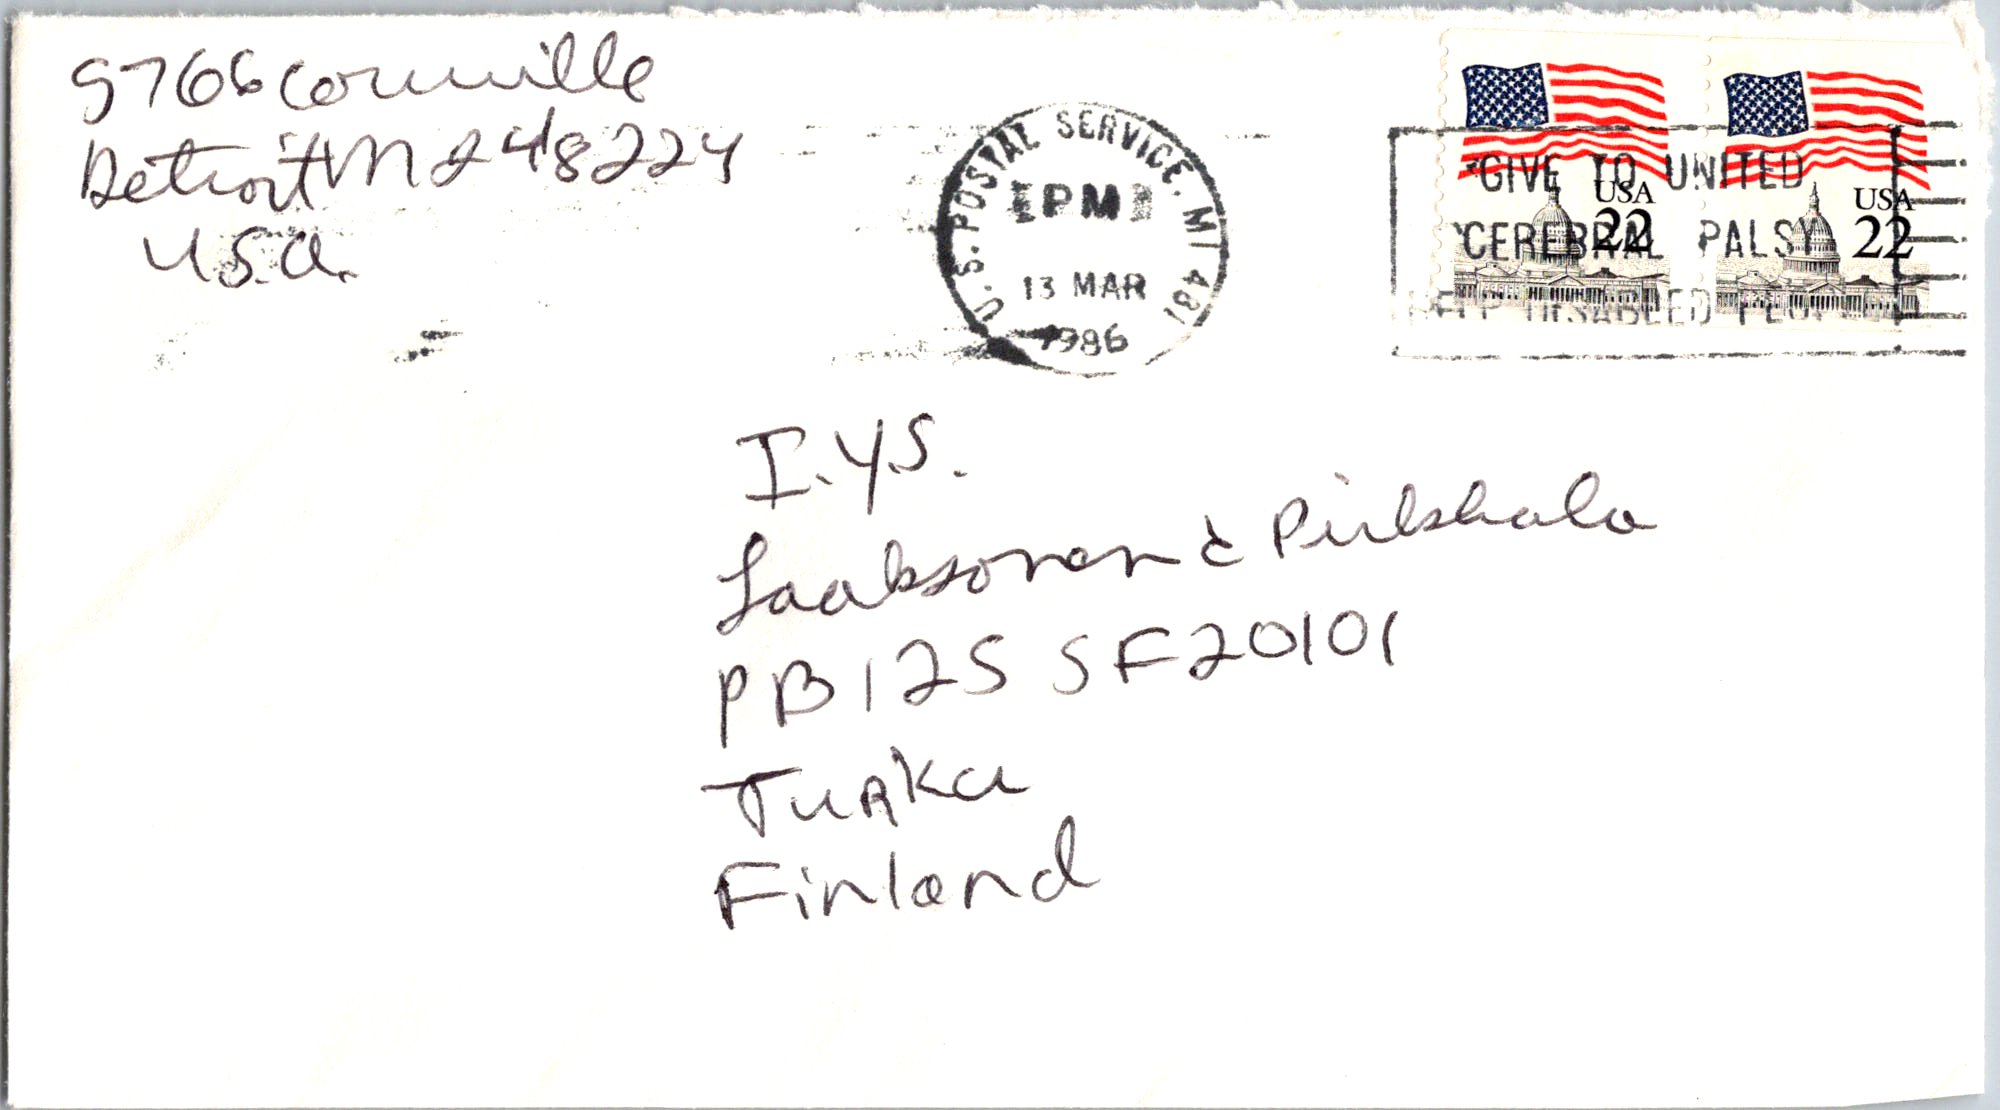 5766 Cornwille
Detroit MI 48224
U.S.A.
U.S. POSTAL SERVICE, MI 481
PM
13 MAR
1986
GIVE TO UNITED
CEREBRAL PALSY
HELP DISABLED PEOPLE
USA
22
USA
22
I.Y.S.
Laaksonen & Pirlshala
PB 125 SF 20101
Turku
Finland